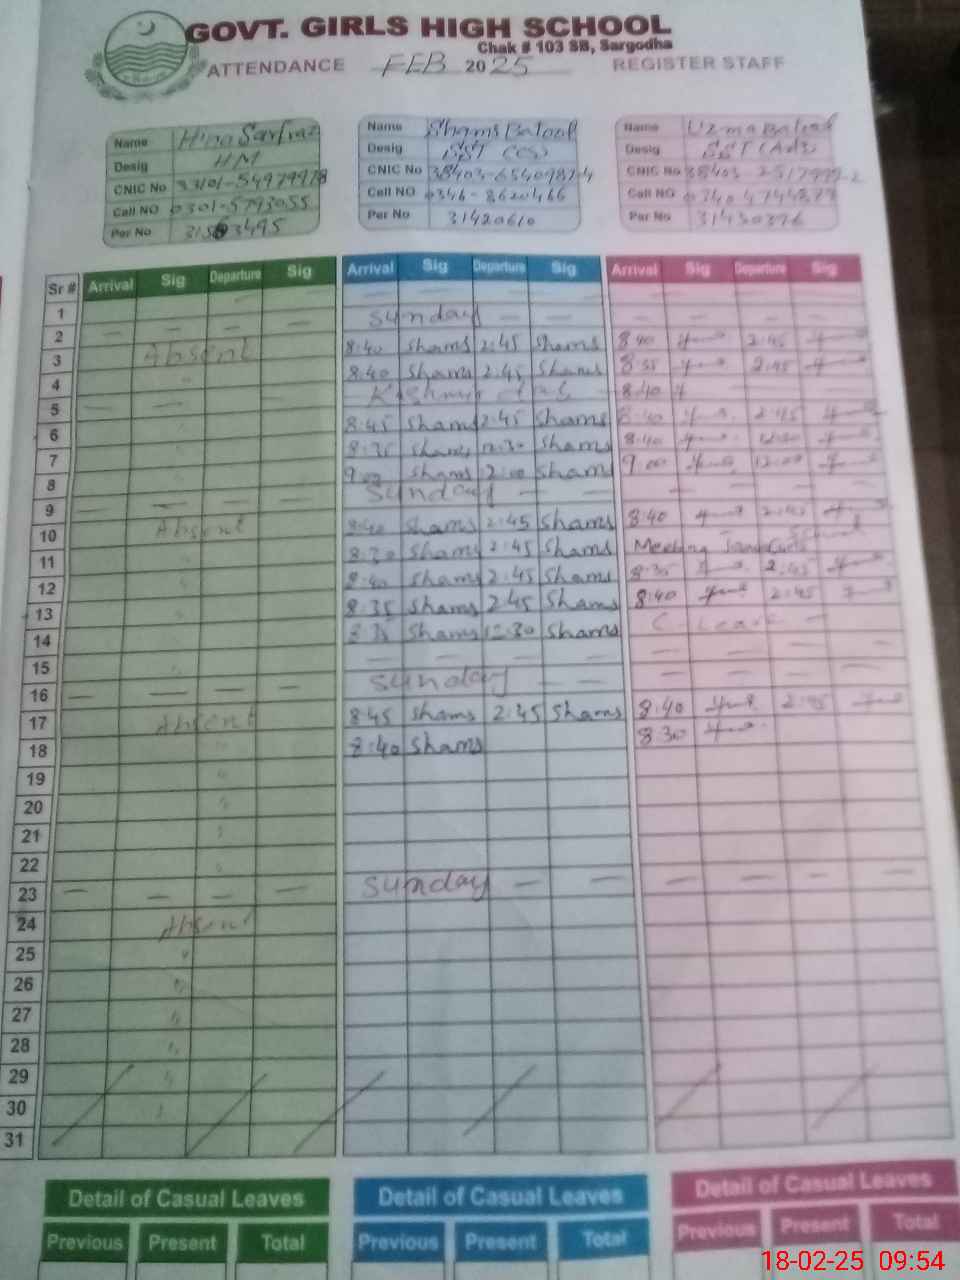 GOVT. GIRLS HIGH SCHOOL
Chak # 103 SB, Sargodha
ATTENDANCE FEB 2025 REGISTER STAFF
Name Hina Sarfraz Name Shams Batool Name Uzma Batool
Desig HM Desig SST (CS) Desig SST (Arts)
CNIC No CNIC No 38403-6540987-4 CNIC No
Call NO 0301-5793055 Call NO 0346-8620466 Call NO 0340 4744873
Per No Per No 31420610 Per No 31430396
Sr # Arrival Sig Departure Sig Arrival Sig Departure Sig Arrival Sig Departure Sig
1
2 — — — — Sunday — —
3 Absent 8:40 Shams 2:45 Shams 8:40 2:45
4 " 8:40 Shams 2:45 Shams 8:35 2:45
5 — — 8:40
6 8:45 Shams 2:45 Shams 8:40 2:45
7 8:35 Shams 12:30 Shams 8:40 12:30
8 9:00 Shams 2:00 Shams 9:00 12:00
9 — — — — Sunday — — — — — —
10 Absent 8:40 Shams 2:45 Shams 8:40 2:45
11 8:30 Shams 2:45 Shams Meeting School
12 8:40 Shams 2:45 Shams 8:35 2:45
13 8:35 Shams 2:45 Shams 8:40 2:45
14 8:35 Shams 12:30 Shams C-Leave —
15 — — — — — — — —
16 — — — — Sunday — — — — — —
17 Absent 8:45 Shams 2:45 Shams 8:40 2:45
18 " 8:40 Shams 8:30
19 "
20 "
21 "
22 "
23 — — — — Sunday — — — — — —
24 Absent
25 "
26 "
27 "
28 "
29 "
30
31
Detail of Casual Leaves Detail of Casual Leaves Detail of Casual Leaves
Previous Present Total Previous Present Total Previous Present Total
18-02-25 09:54